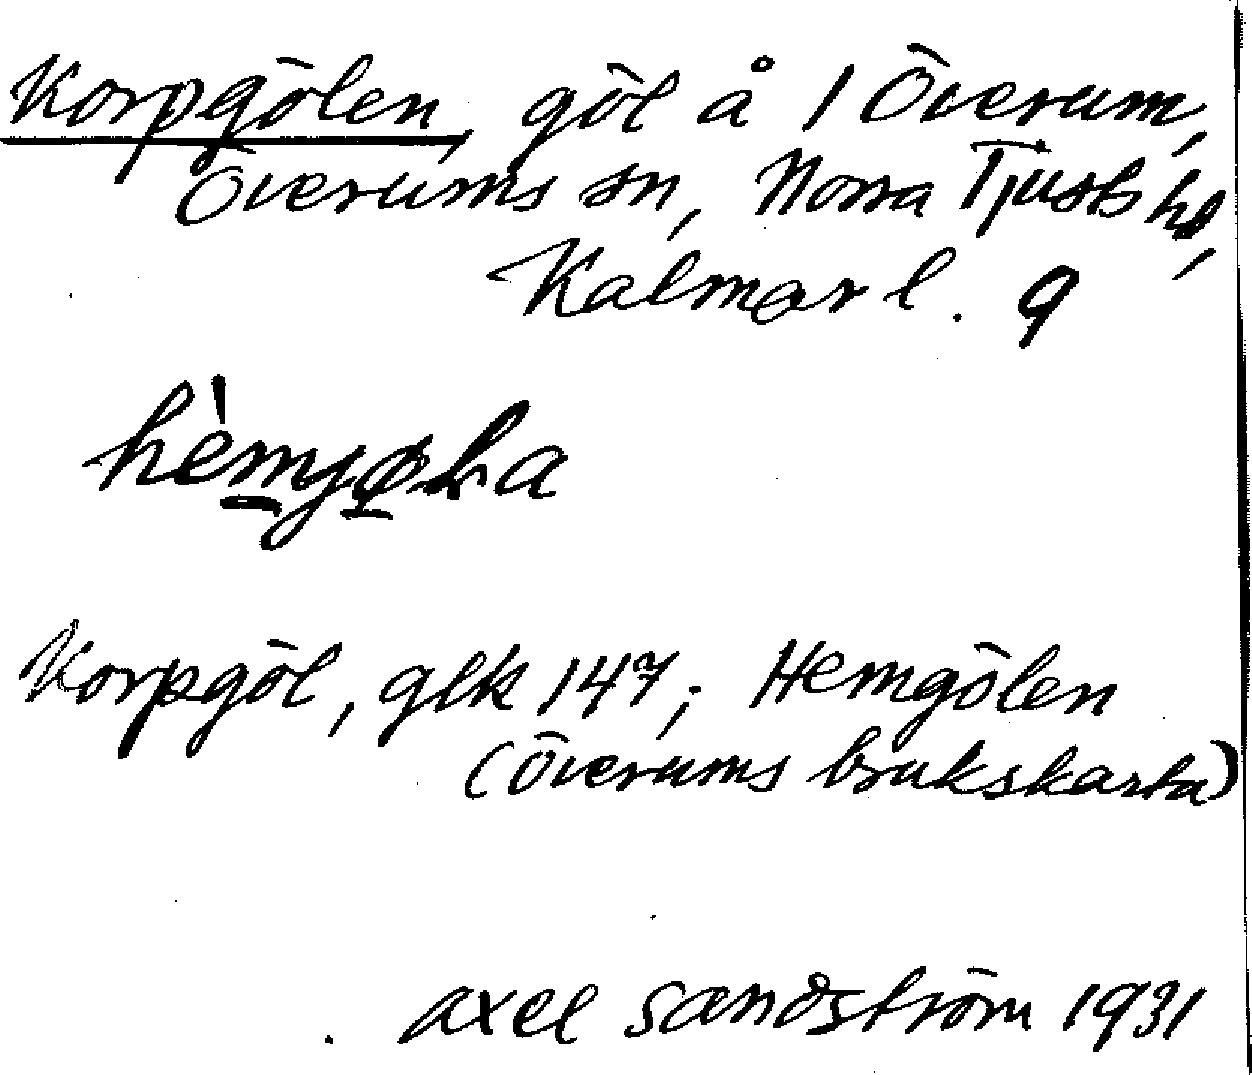 Korpgölen, göl å 1 Överum,
Överums sn, Norra Tjusts hd,
Kalmar l. 9
hèmgøLa
Korpgöl, glk 147; Hemgölen
(Överums brukskarta)
Axel Sandström 1931